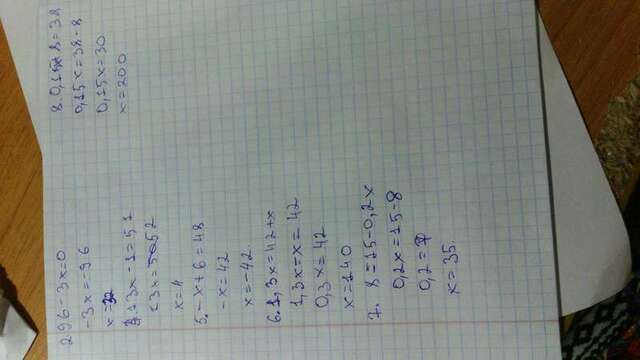 2 96-3x=0
-3x=-96
x=32
13x-1=51
13x=52
x=4
5. -x+6=48
-x=42
x=-42
6. 1,3x=42+x
1,3x-x=42
0,3x=42
x=140
7. 8=15-0,2x
0,2x=15-8
0,2=7
x=35.
8. 0,15x+8=38
0,15x=38-8
0,15x=30
x=200